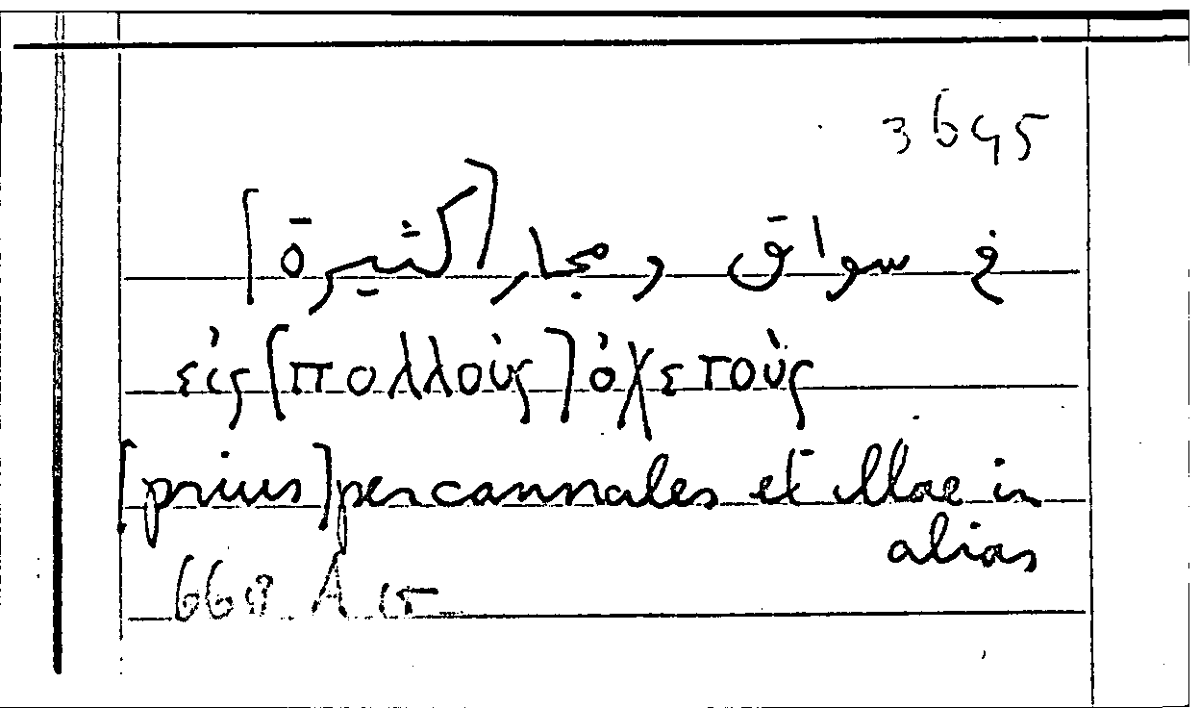 3645
في سواق ومجار [كثيرة]
εἰς [πολλοὺς] ὀχετοὺς
[prius] per cannales et illae in
alias
668 A 15